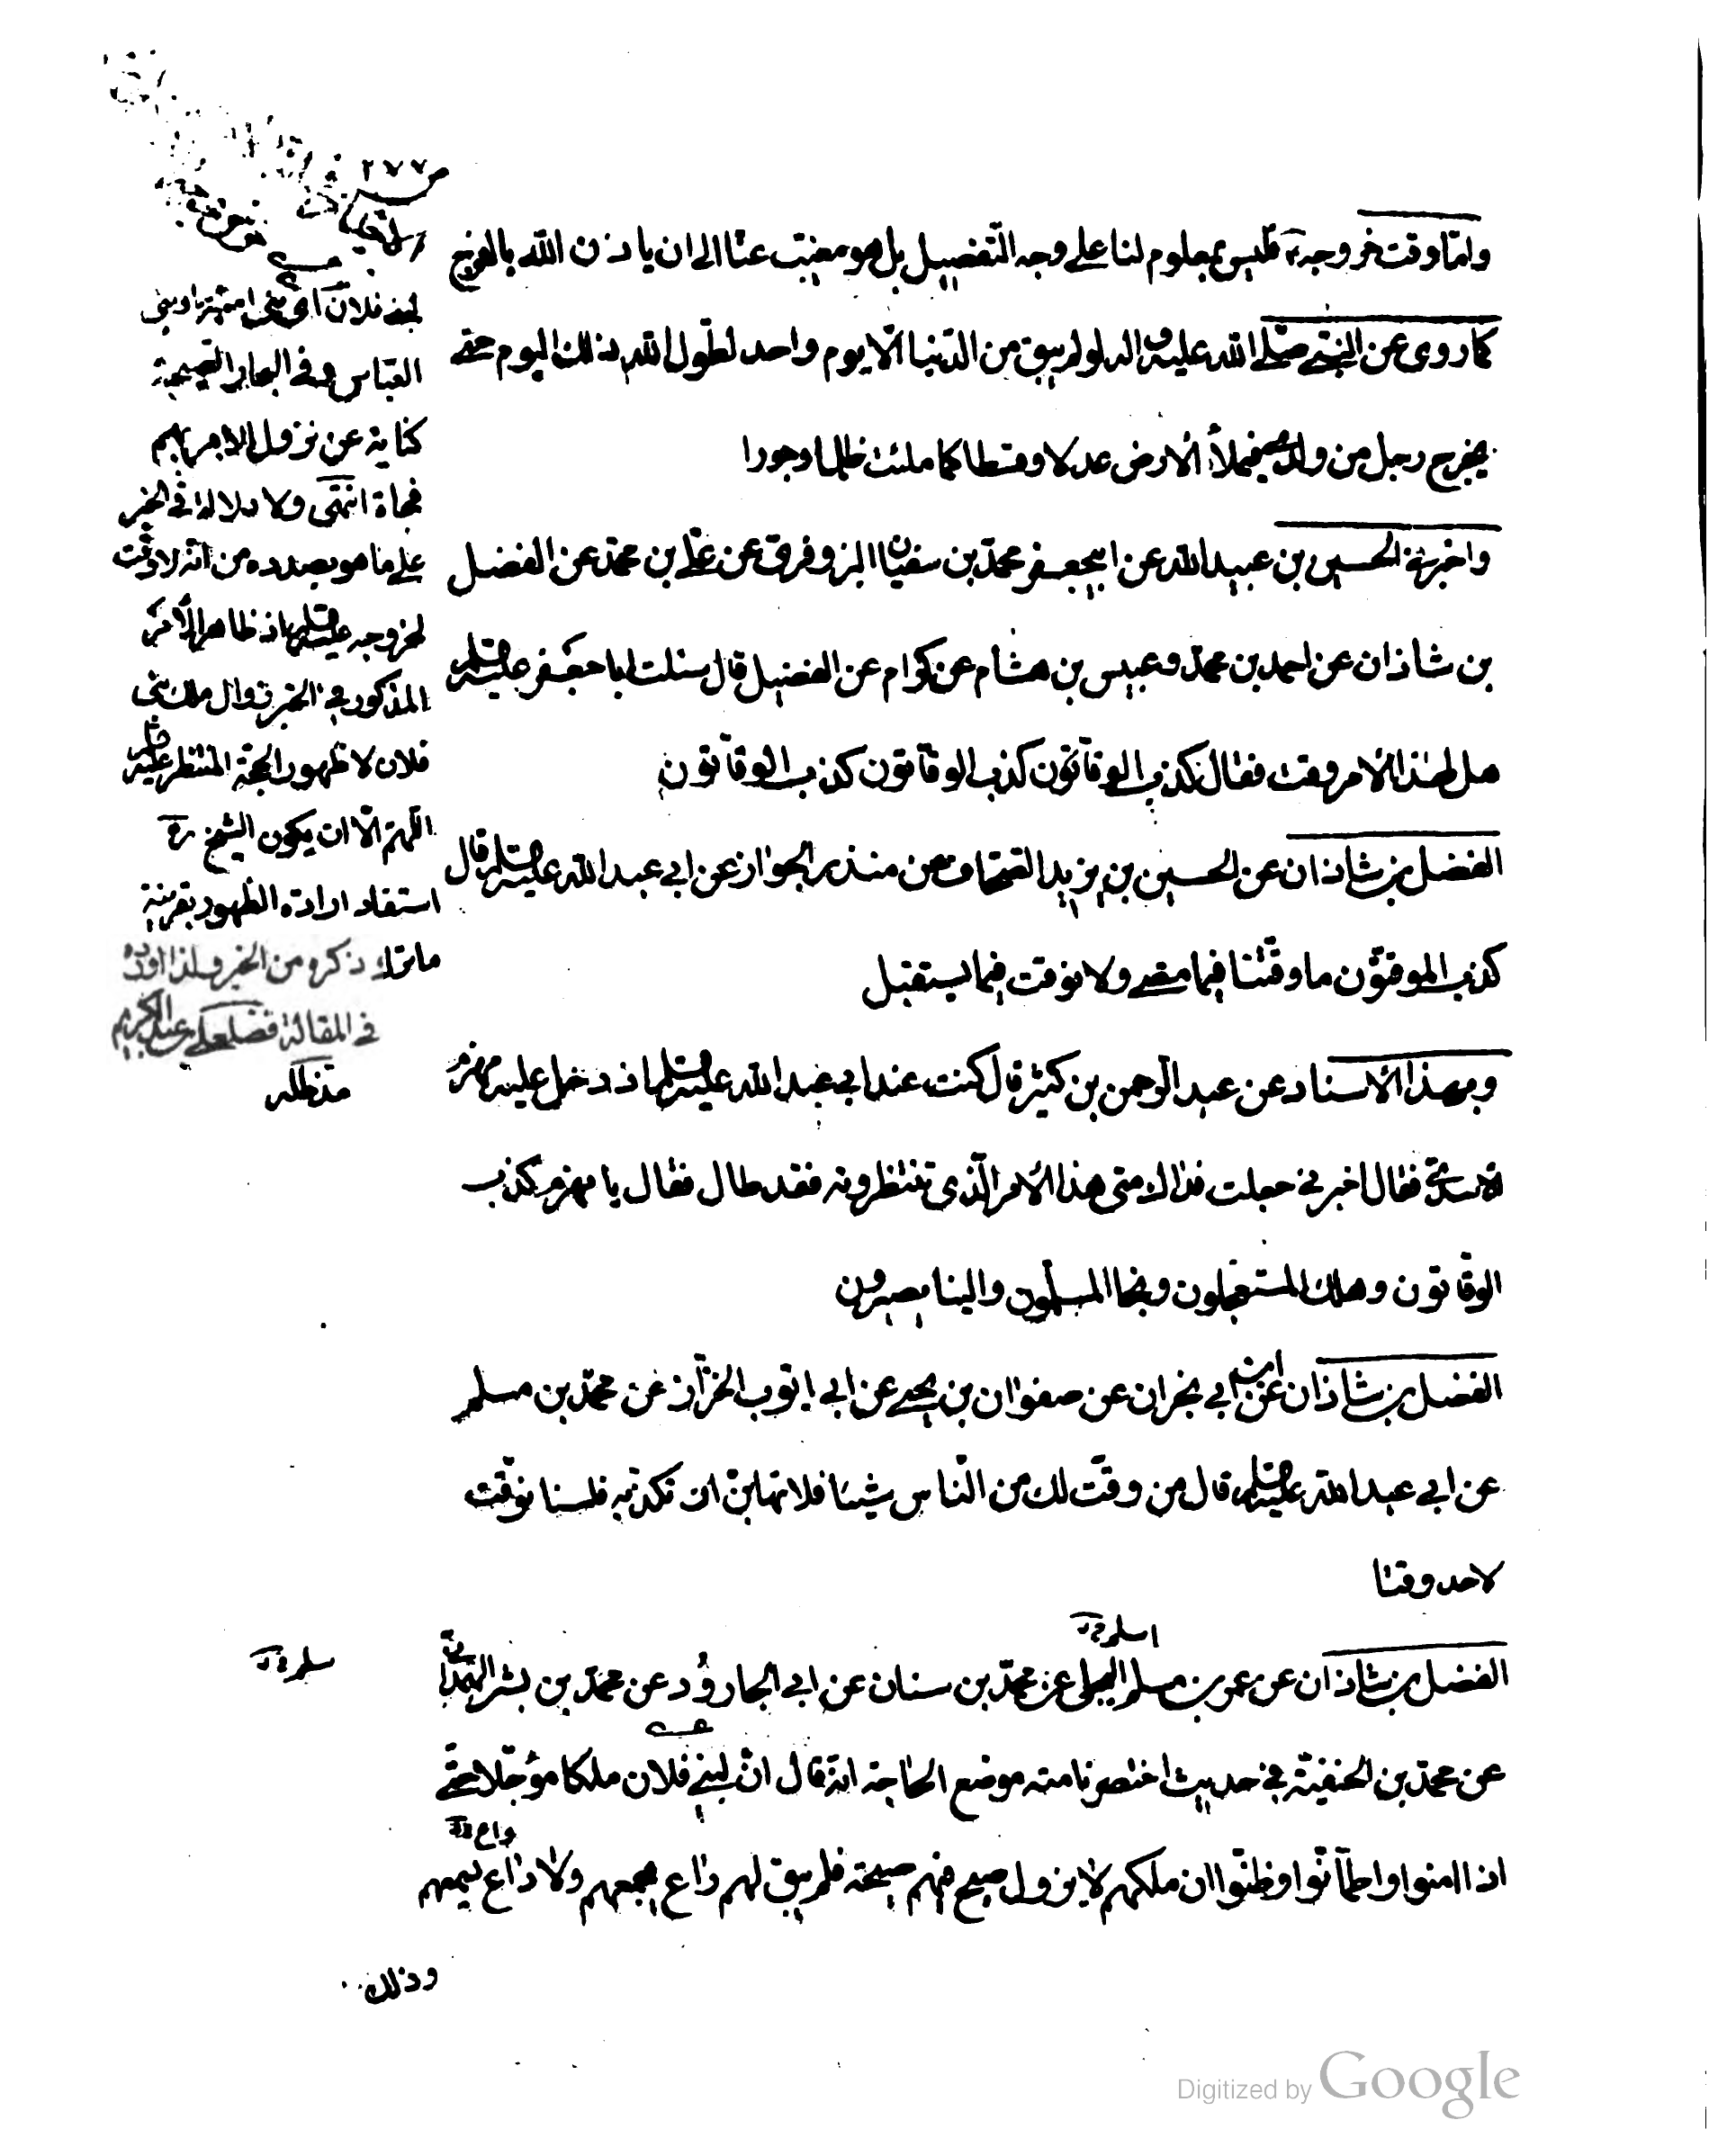 ص ٢٧٧
وامّا وقت خروجه ؑ فليس بمعلوم لنا على وجه التّفضييل بل هو مغيّب عنّا الى ان ياذن اللّه بالفرج
كما روى عن النّبى صلّى اللّه عليه واله لو لم يبق من الدّنيا الّا يوم واحد لطوّل اللّه ذلك اليوم حتّى
يخرج رجل من ولدى فيملأ الأرض عدلا وقسطا كما ملئت ظلما وجورا
واخبرنى الحسين بن عبيد اللّه عن ابيجعفر محمّد بن سفيان البزوفرى عن علىّ بن محمّد عن الفضل
بن شاذان عن احمد بن محمّد وعبيس بن هشام عن كرام عن الفضيل قال سئلت ابا جعفر عليه السّلم
هل لهذا الأمر وقت فقال كذب الوقّاتون كذب الوقّاتون كذب الوقّاتون
الفضل بن شاذان عن الحسين بن يزيد الصّحّاف عن منذر الجوّاز عن ابي عبد اللّه عليه السّلم قال
كذب الموقّتون ما وقّتنا فيما مضى ولا نوقّت فيما يستقبل
وبهذا الأسناد عن عبد الرّحمن بن كثير قال كنت عند ابي عبد اللّه عليه السّلم اذ دخل عليه مهزم
الاسدىّ فقال اخبرنى جعلت فداك متى هذا الأمر الّذى تنتظرونه فقد طال فقال يا مهزم كذب
الوقّاتون وهلك المستعجلون ونجا المسلّمون والينا يصيرون
الفضل بن شاذان عن ابن ابي نجران عن صفوان بن يحيى عن ابي ايّوب الخزّاز عن محمّد بن مسلم
عن ابي عبد اللّه عليه السّلم قال من وقّت لك من النّاس شيئا فلا تهابنّ ان تكذّبه فلسنا نوقّت
لاحد وقتا
اسلم
الفضل بن شاذان عن عمر بن مسلم البجلى عن محمّد بن سنان عن ابي الجارود عن محمّد بن بشر الهمدانى
عن محمّد بن الحنفيّة في حديث اختصرنا منه موضع الحاجة انّه قال انّ لبنى فلان ملكا مؤجّلا حتّى
واع
اذا امنوا واطمأنّوا وظنّوا ان ملكهم لا يزول صيح فيهم صيحة فلم يبق لهم راع يجمعهم ولا داع يسمعهم
وذلك
لبنى فلان اى بنى اميّة او بنى
العباس وفى البحار الصّيحة
كناية عن نزول الامر بهم
فجاة انتهى ولا دلالة في الخبر
على ما هو بصدده من انّه لا وقت
لخروجه عليه السّلم اذ ظاهر الأمر
المذكور في الخبر زوال ملك بنى
فلان لا ظهور الحجّة المنتظر عليه السّلم
اللّهمّ الّا ان يكون الشيخ ره
استفاد ارادة الظّهور بقرينة
ما ترك ذكره من الخبر ولذا اورده
في المقالة فضلعلى بن عبد الكريم
مدّ ظلّه
سلم